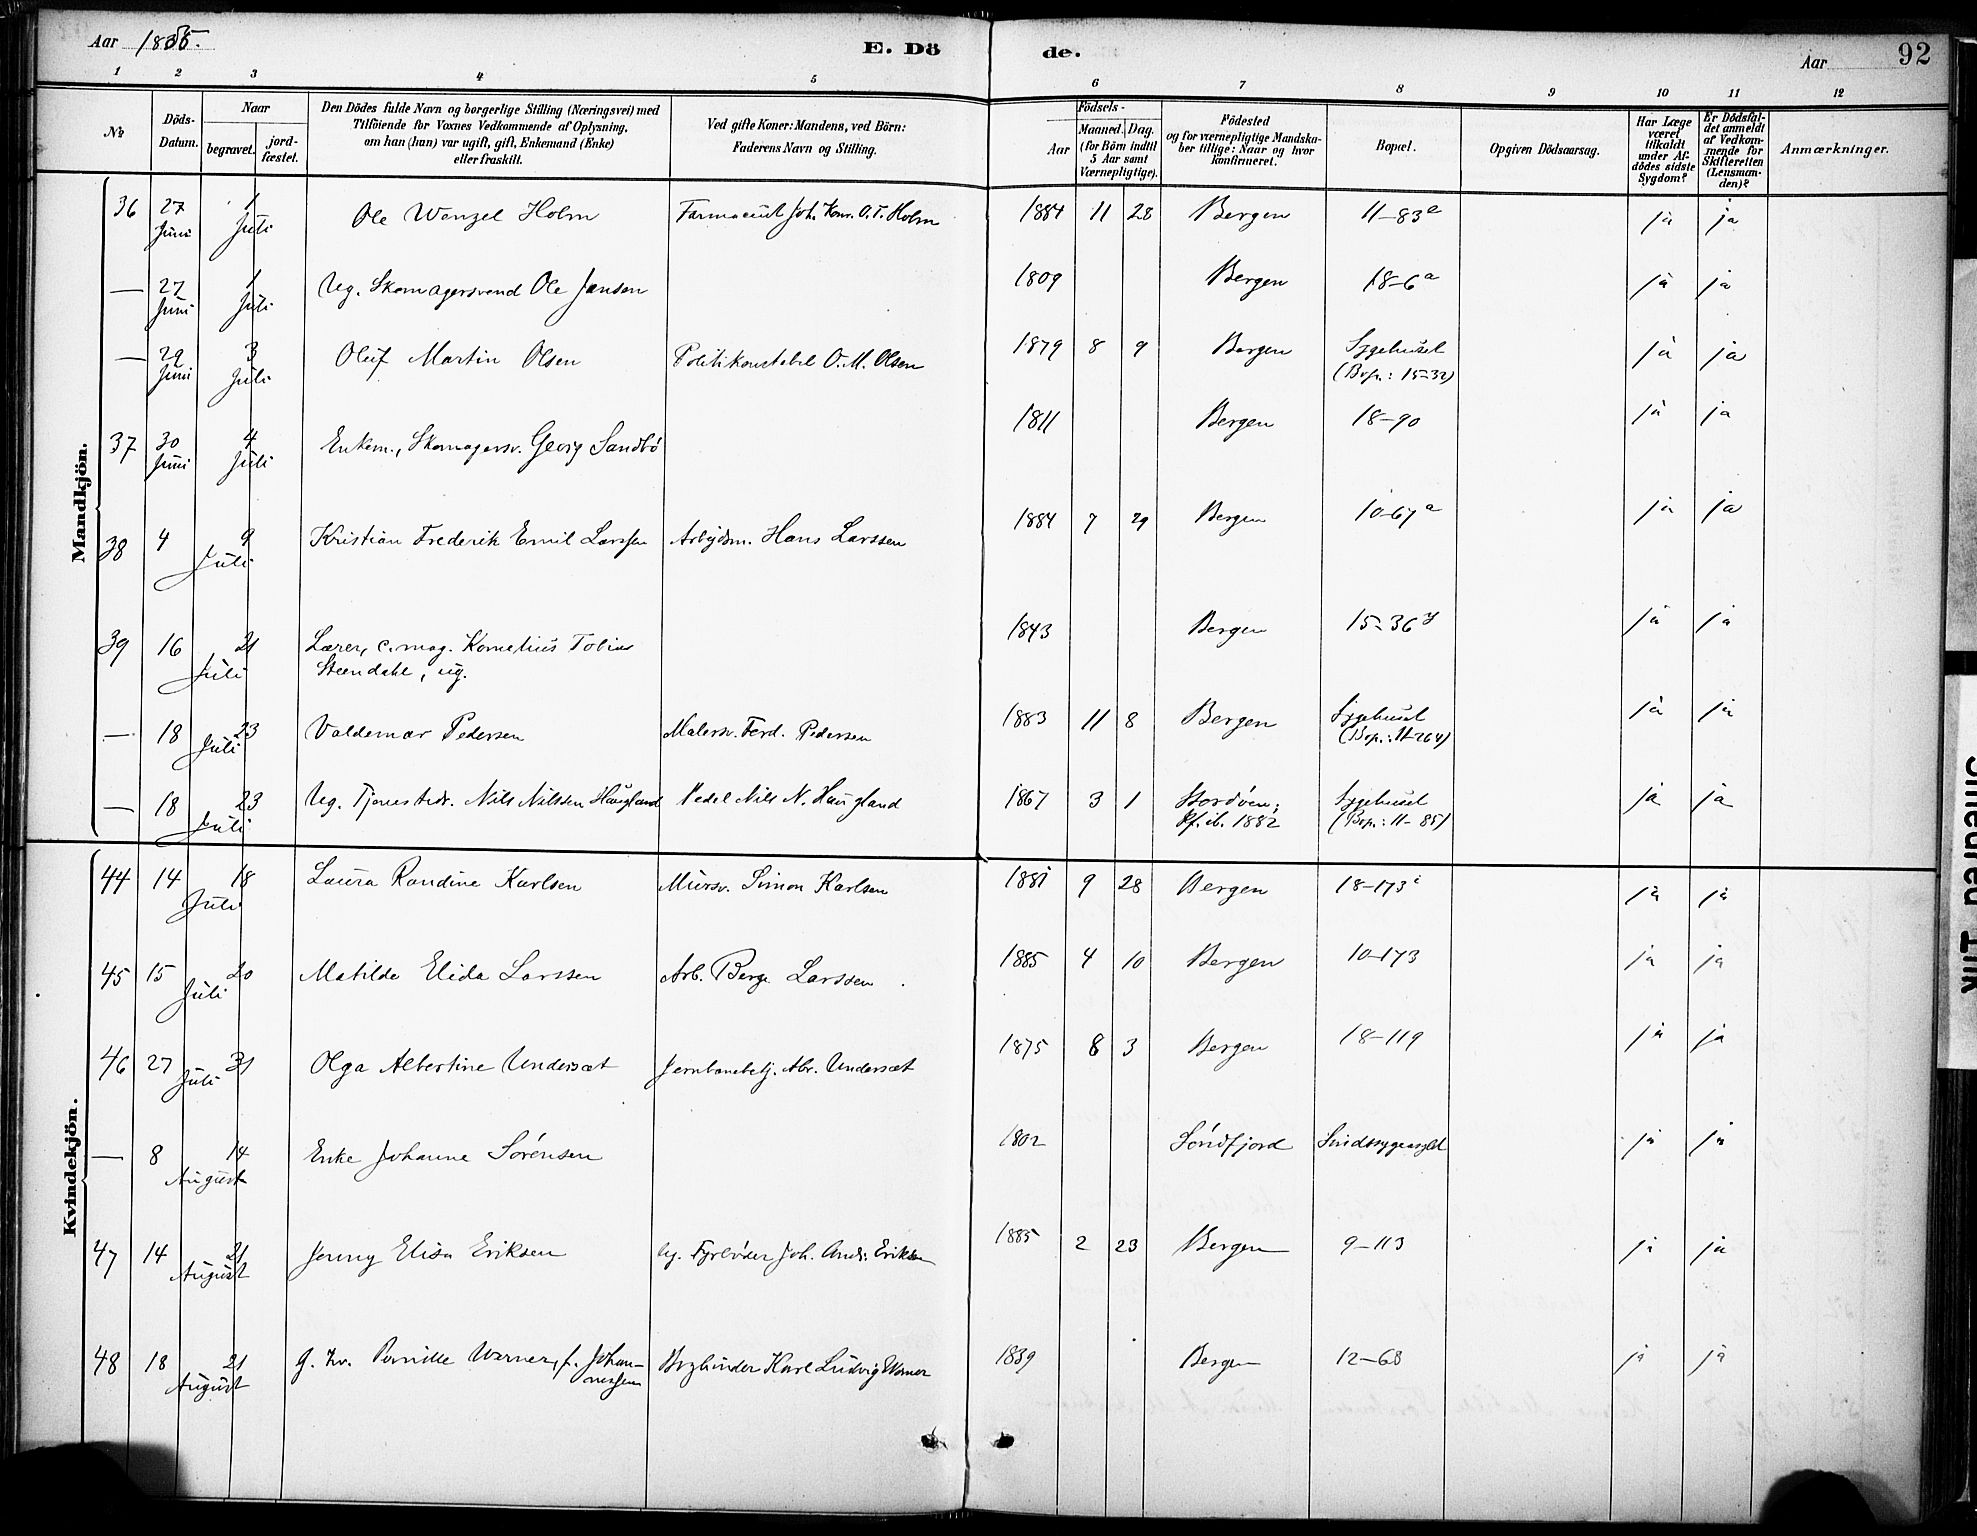 Aar 1885.
E. Dö
de.
Aar
92
1 2 3 4 5 6 7 8 9 10 11 12
No
Döds-
Datum.
Naar
begravet.
jord-
fæstet.
Den Dödes fulde Navn og borgerlige Stilling (Næringsvei) med
Tilföiende for Voxnes Vedkommende af Oplysning,
om han (hun) var ugift, gift, Enkemand (Enke)
eller fraskilt.
Ved gifte Koner: Mandens, ved Börn:
Faderens Navn og Stilling.
Födsels-
Aar
Maaned.
Dag.
(for Börn indtil
5 Aar samt
Værnepligtige).
Födested
og for værnepligtige Mandska-
ber tillige: Naar og hvor
konfirmeret.
Bopæl.
Opgiven Dödsaarsag.
Har Læge
været
tilkaldt
under Af-
dödes sidste
Sygdom?
Er Dödsfal-
det anmeldt
af Vedkom-
mende for
Skifteretten
(Lensman-
den)?
Anmærkninger.
Mandkjön.
36 27 Juni 1 Juli Ole Wenzel Holm Farmaceut Joh. Konr. O. T. Holm 1884 11 28 Bergen 11-83a ja ja
— 27 Juni 1 Juli Ug. Skomagersvend Ole Jansen 1809 Bergen 18-6a ja ja
— 29 Juni 3 Juli Oluf Martin Olsen Politikonstabel O. M. Olsen 1879 8 9 Bergen Sygehuset ja ja
(Bop.: 15-32)
37 30 Juni 4 Juli Enkem., Skomagersv. Georg Sandbö 1811 Bergen 18-90 ja ja
38 4 9 Juli Kristian Frederik Emil Larssen Arbejdsm. Hans Larssen 1884 7 29 Bergen 10-67a ja ja
39 16 21 Juli Lærer, c. mag. Kornelius Tobias 1843 Bergen 15-36 ja ja
Steendahl, ug.
— 18 23 Juli Valdemar Pedersen Malersv. Ferd. Pedersen 1883 11 8 Bergen Sygehuset ja ja
(Bop.: 11-264)
— 18 23 Juli Ug. Tjenestedr. Nils Nilssen Haugland Pedel Nils N. Haugland 1867 3 1 Stordöen; Sygehuset ja ja
Kf. ib. 1882 (Bop.: 11-85)
Kvindekjön.
44 14 18 Juli Laura Randine Karlsen Mursv. Simon Karlsen 1881 9 28 Bergen 18-173 ja ja
45 15 20 Juli Matilde Elida Larssen Arb. Berge Larssen 1885 4 10 Bergen 10-173 ja ja
46 27 31 Juli Olga Albertine Undersæt Jernbanebetj. Abr. Undersæt 1875 8 3 Bergen 18-119 ja ja
— 8 14 August Enke Johanne Sörensen 1802 Söndfjord Sindssygeasylet ja ja
47 14 21 August Jenny Elisa Eriksen Ug. Fyrböder Joh. Andr. Eriksen 1885 2 23 Bergen 9-113 ja ja
48 18 21 August G. Kv. Pernille Werner, f. Johan- Bogbinder Karl Ludvig Werner 1839 Bergen 12-68 ja ja
nessen